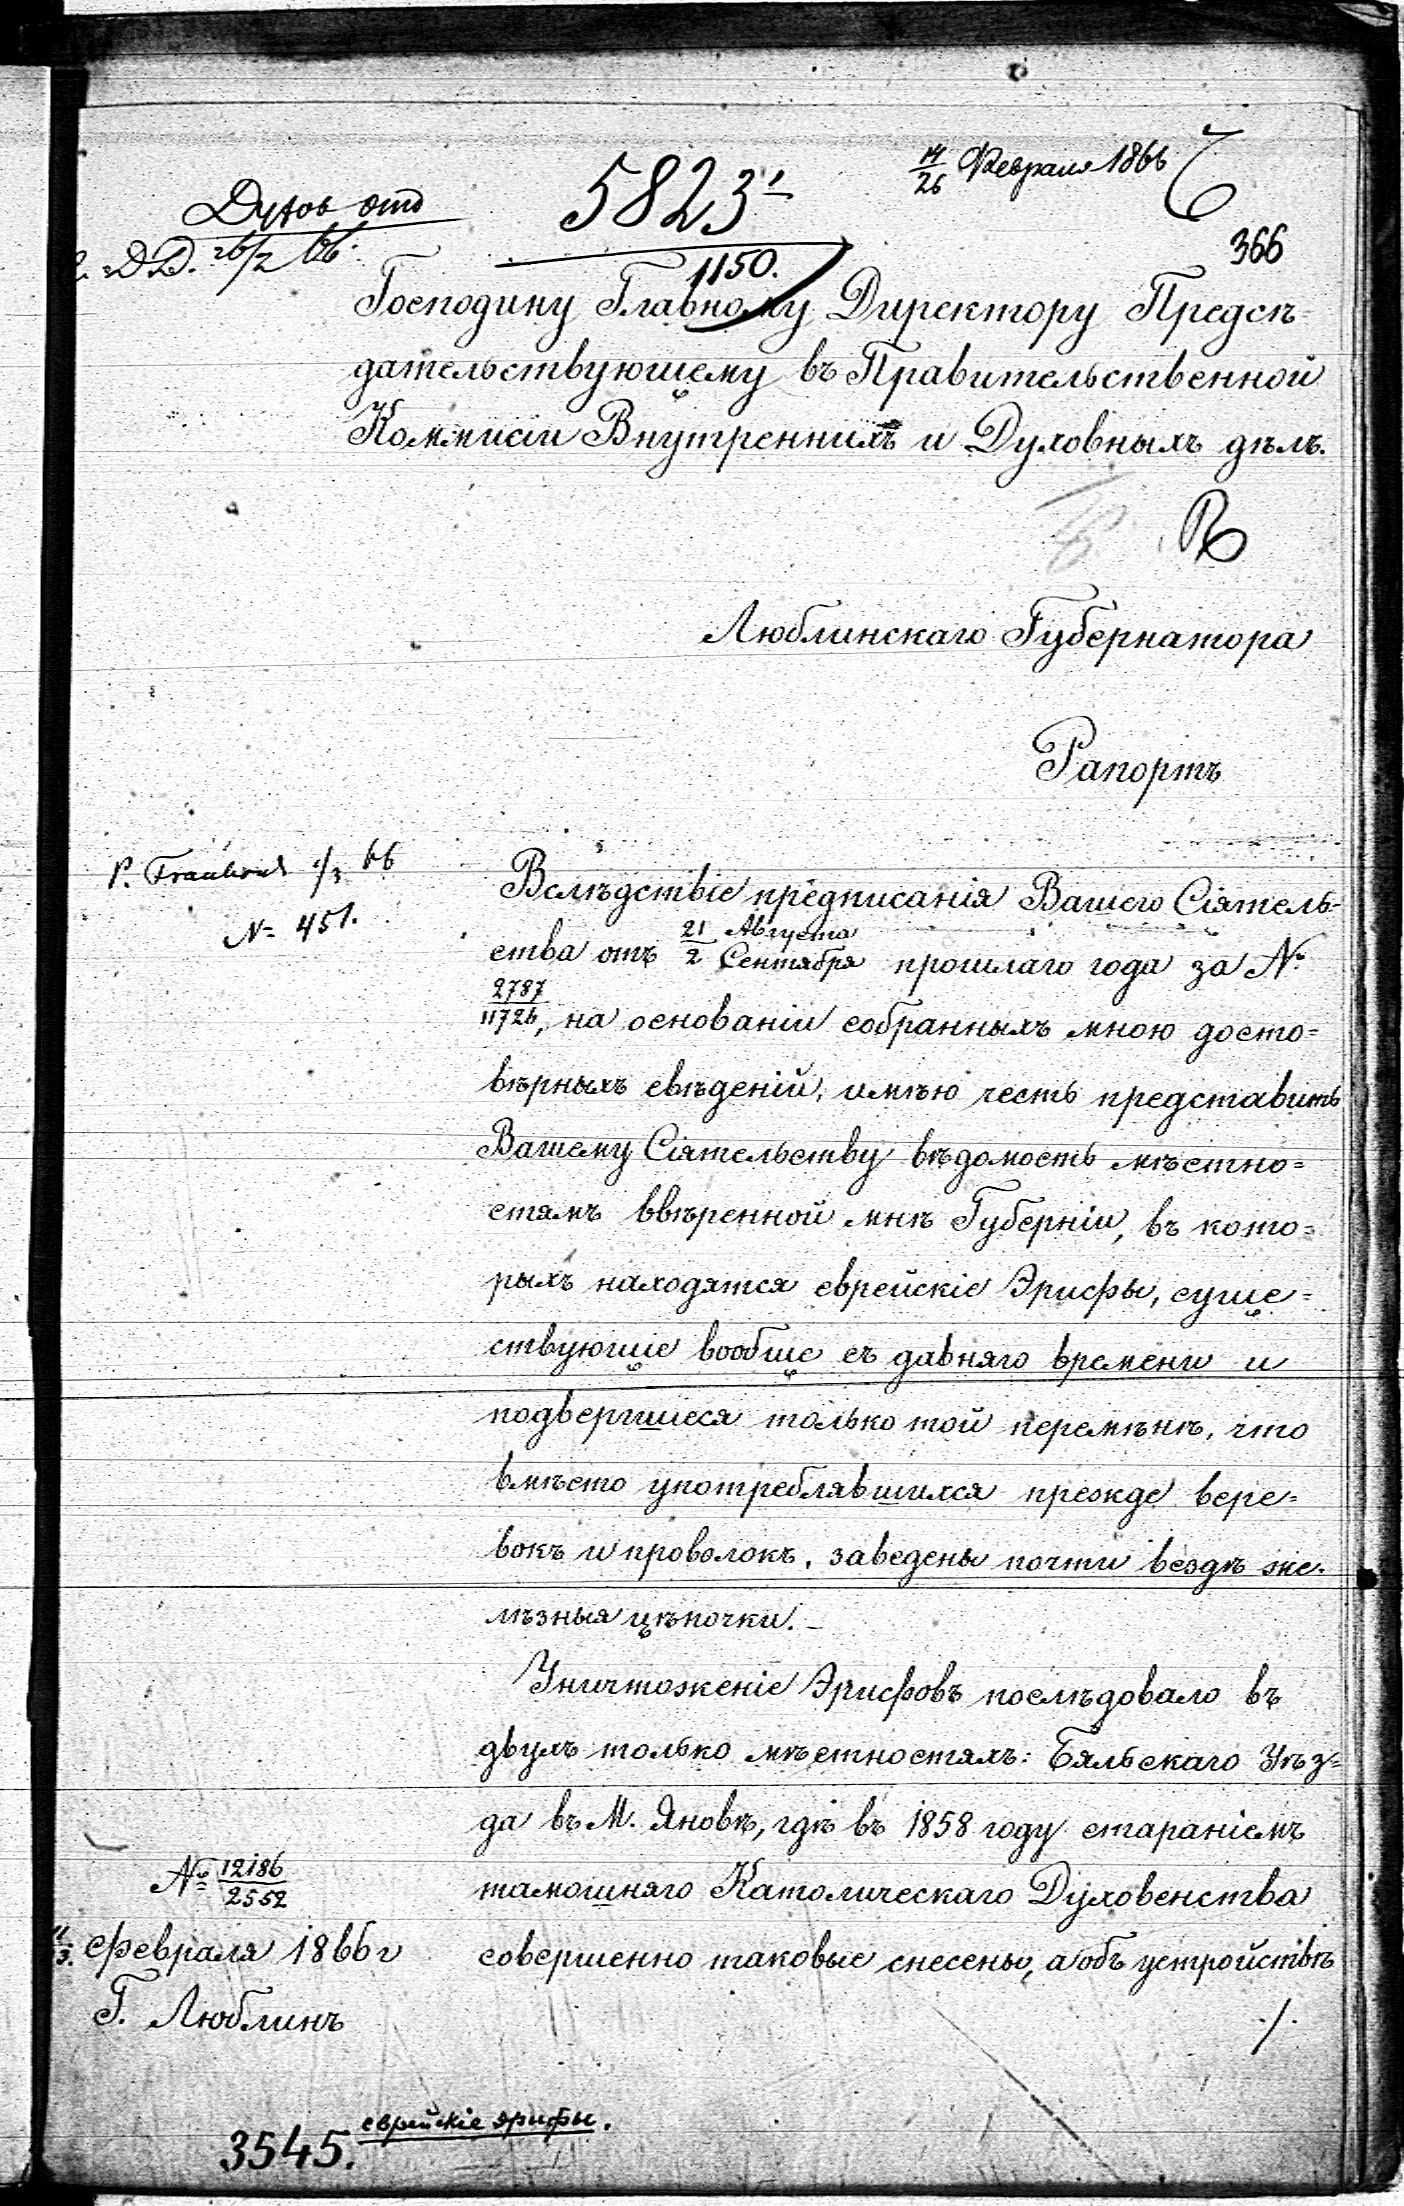 14/26 Февраля 1866
5823
1150.
366
Духов отд
26/2 66.
Господину Главному Директору Предсѣ=
дательствующему въ Правительственной
Коммисіи Внутреннихъ и Духовныхъ дѣлъ.
Люблинскаго Губернатора
Рапортъ
1/3 66
№ 451.
Вслѣдствіе предписанія Вашего Сіятель-
ства отъ 21 Августа/2 Сентября прошлаго года за №
2787/11726, на основаніи собранныхъ мною досто=
вѣрныхъ свѣденій, имѣю честь представить
Вашему Сіятельству вѣдомость мѣстно=
стямъ ввѣренной мнѣ Губерніи, въ кото=
рыхъ находятся еврейскіе Эрифы, суще=
ствующіе вообще съ давняго времени и
подвергшиеся только той перемѣнѣ, что
вмѣсто употреблявшихся прежде вере=
вокъ и проволокъ, заведены почти вездѣ же-
лѣзныя цѣпочки.–
Уничтоженіе Эрифовъ послѣдовало въ
двухъ только мѣстностяхъ: Бяльскаго Уѣз=
да въ М. Яновѣ, гдѣ въ 1858 году стараніемъ
тамошняго Католическаго Духовенства
совершенно таковые снесены, а объ устройствѣ
./.
№ 12186/2552
Февраля 1866 г
Г. Люблинъ
еврейскіе эрифы.
3545.